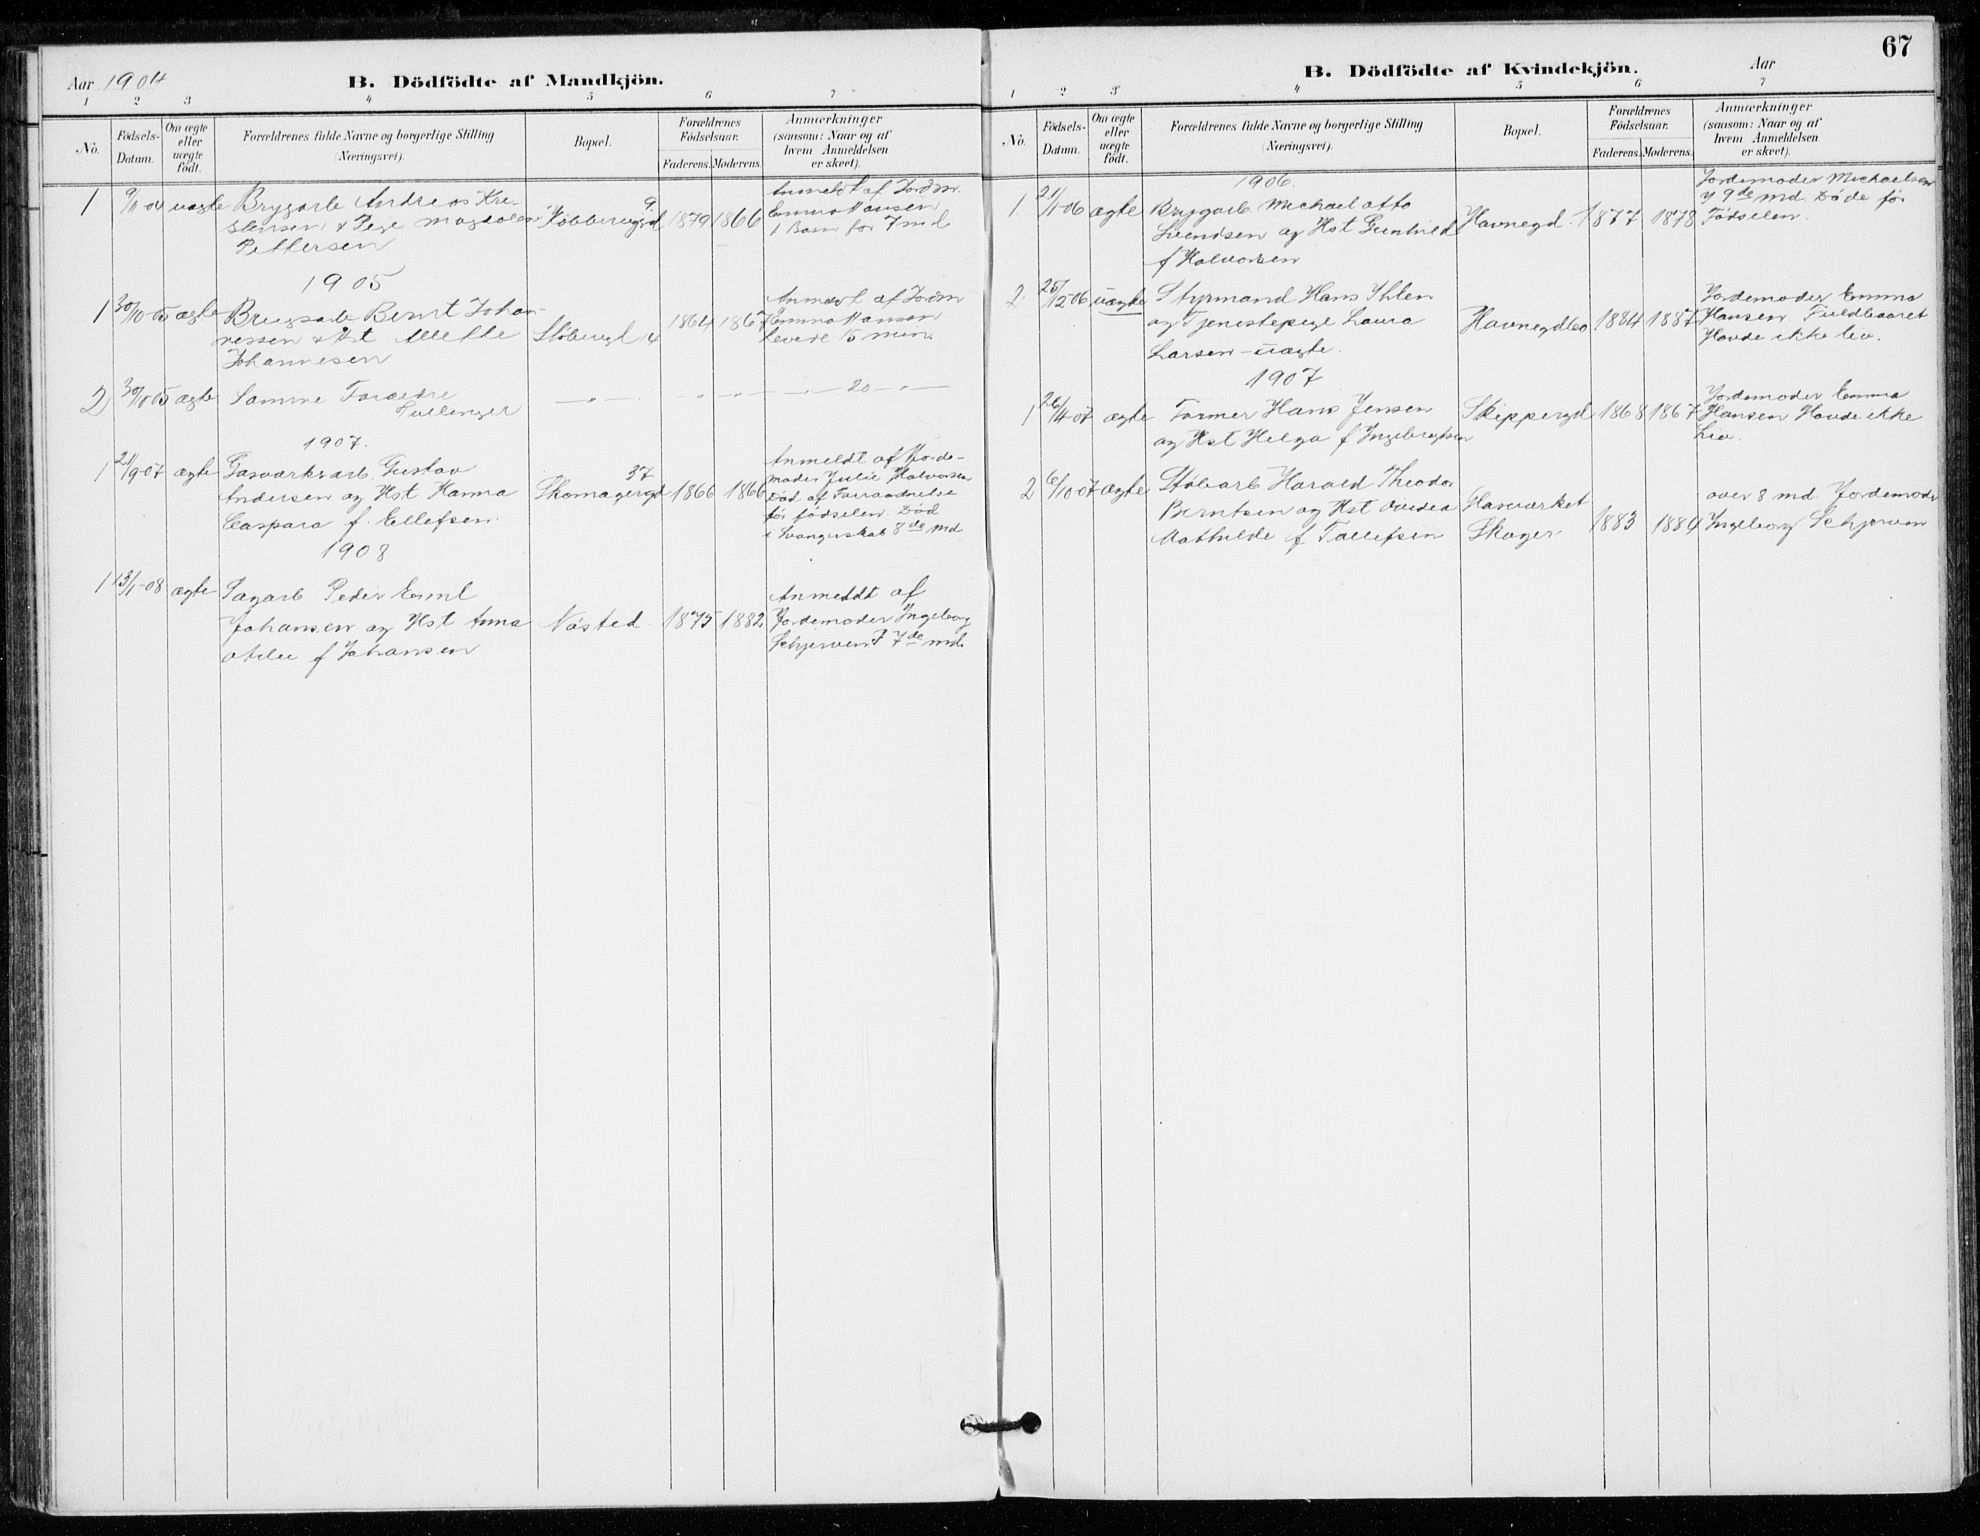 67
Aar 1904
B. Dödfödte af Mandkjön.
1 2 3 4 5 6 7
No.
Födsels-Datum.
Om ægte eller uægte födt.
Forældrenes fulde Navne og borgerlige Stilling
(Næringsvei).
Bopæl.
Forældrenes Födselsaar.
Faderens. Moderens.
Anmærkninger
(saasom: Naar og af
hvem Anmeldelsen
er skeet).
1 9/11-04 uægte Brygarb Andreas Kri- 9 1879 1866 Anmeldt af Jordm.
stensen & Pige Magdalene Kobberugd Emma Hansen
Pettersen 1 Barn før 7 md
1905
1 30/10-05 ægte Brugsarb Bernt Johan- 1864 1867 Anmeldt af Jordm
nessen & Hst Mette Støberigd 4 Emma Hansen
Johannesen levede 15 min.
2 30/10-05 ægte Samme Forældre — " — " " — " — 20 — " —
Tvillinger
1907.
1 21/9-07 ægte Gasværksarb. Gustav 37 Anmeldt af Jorde-
Andersen og Hst Hanna Skomagergd 1866 1866 moder Julie Halvorsen
Caspara f. Ellefsen. Død af Forraadnelse
før fødselen. Død
i Svangerskab 8de Md
1908
1 13/1-08 ægte Sagarb Peder Emil Anmeldt af
Johansen og Hst Anna Nøsted 1875 1882 Jordemoder Ingeborg
Otilie f Johansen Schjerven I 7de md.
B. Dödfödte af Kvindekjön.
Aar
1 2 3 4 5 6 7
No.
Födsels-Datum.
Om ægte eller uægte födt.
Forældrenes fulde Navne og borgerlige Stilling
(Næringsvei).
Bopæl.
Forældrenes Födselsaar.
Faderens. Moderens.
Anmærkninger
(saasom: Naar og af
hvem Anmeldelsen
er skeet).
1906.
1 21/1-06 ægte Brygarb Michael Otto Havnegd. 1877 1878 Jordemoder Michaelsen
Svendsen og Hst Gunhild I 9de md. Døde før
f Halvorsen Fødselen.
2 25/12-06 uægte Styrmand Hans Ihlen Jordemoder Emma
og Tjenestepige Laura Havnegd 1884 1887 Hansen Fuldbaaret
Larsen - uægte. Havde ikke liv.
1907
1 26/4-07 ægte Former Hans Jensen Skippergd 1868 1867 Jordemoder Emma
og Hst Helga f Ingebregtsen Hansen Havde ikke
Liv.
2 6/10-07 ægte Støbarb Harald Theodor over 8 md. Jordemoder
Berntsen og Hst Ovidea Gasværket 1883 1884 Ingeborg Schjerven
Mathilde f Tollefsen Skoger